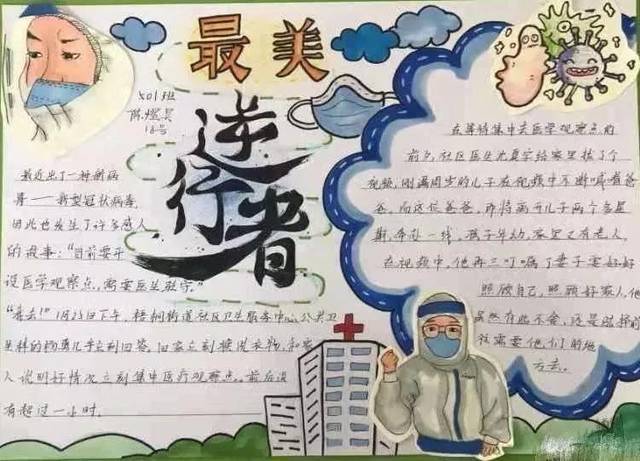 最美
逆行者
501班
18号
最近出了一种新病
毒——新型冠状病毒,
因此也发生了许多感人
的故事:“目前要开
设医学观察点,需要医生驻守。”
“我去!”1月23日下午,梧桐街道社区卫生服务中心公共卫
生科的杨勇几乎立刻回答,回家立刻换洗衣物,和家
人说明好情况立刻集中医疗观察点。前后没
有超过一小时。
在等待集中去医学观察点的
前夕,社区医生沈夏宇给家里拨了个
视频,刚满周岁的儿子在视频中不断喊着爸
爸,而这位爸爸,即将离开儿子两个多星
期,奔赴一线,孩子年幼,家里又有老人
在视频中,他再三叮嘱了妻子要好好
照顾自己,照顾好家人,他
虽然有些不舍,还是选择前
往需要他们的地
方去。